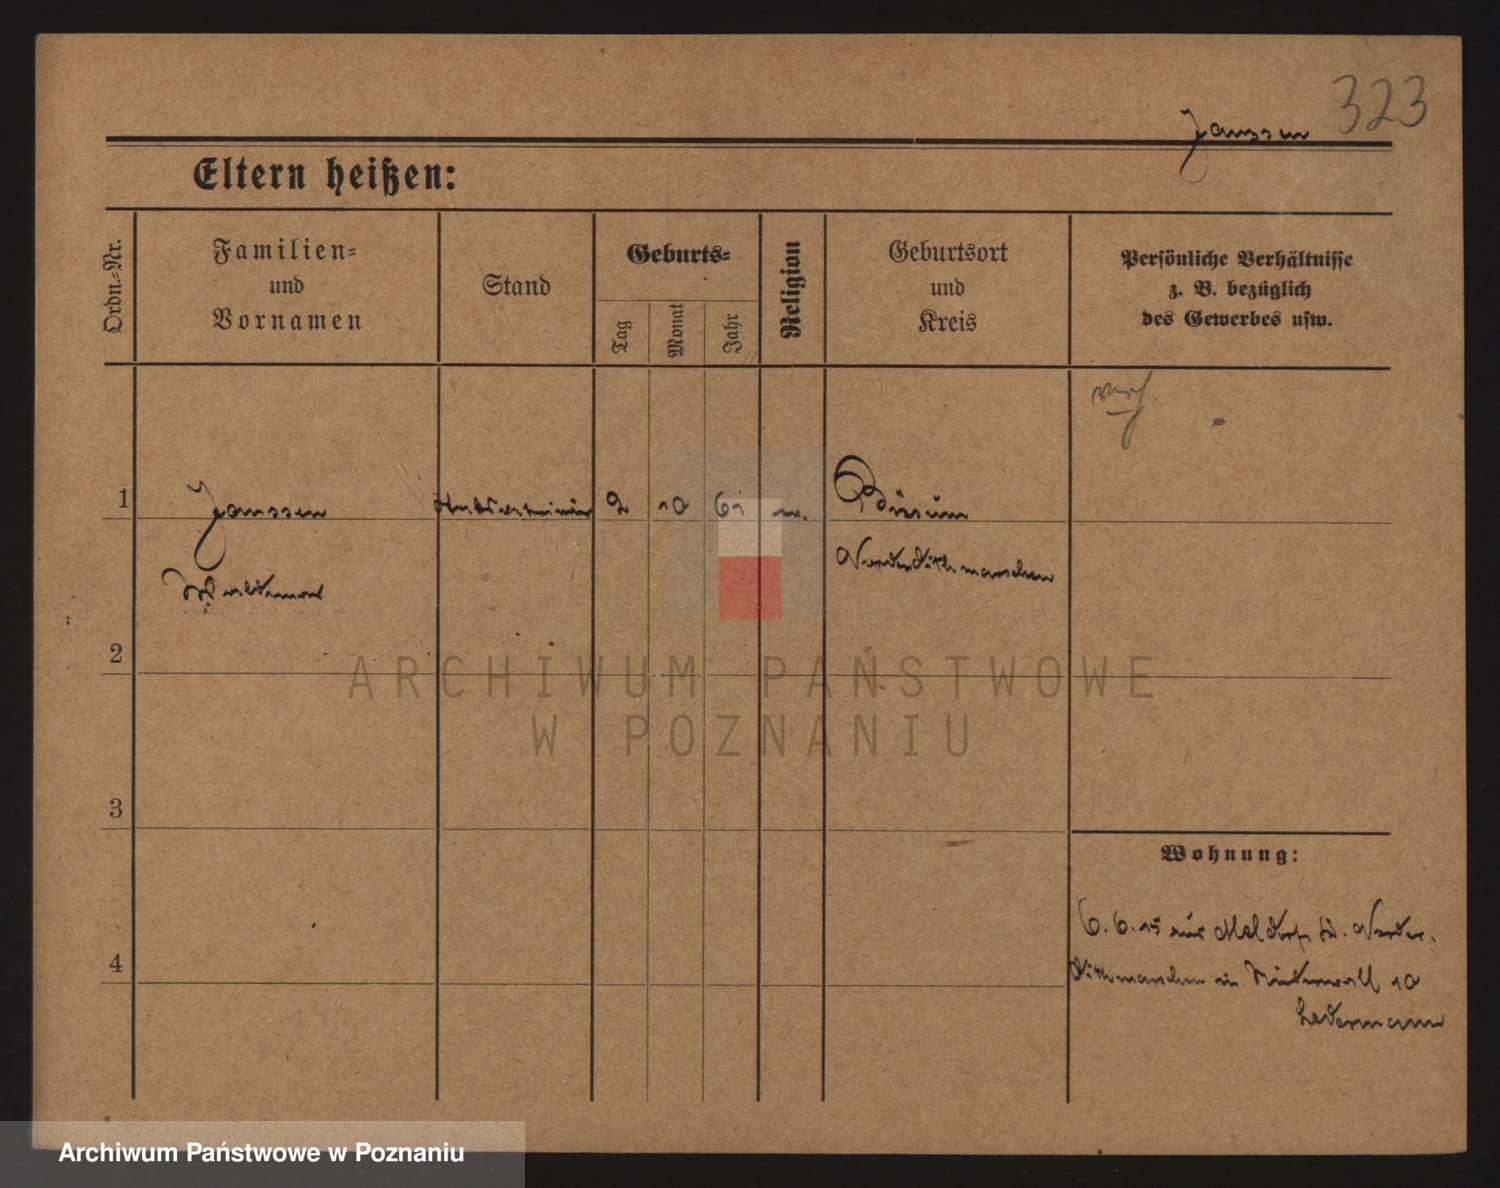 323
Janssen
Eltern heißen:
Ordn.-Nr.
Familien-
und
Vornamen
Stand
Geburts-
Tag
Monat
Jahr
Religion
Geburtsort
und
Kreis
Persönliche Verhältnisse
z. B. bezüglich
des Gewerbes usw.
1
Janssen
Waldemar
2 10 61
Büsum
Norderdithmarschen
2
3
4
Wohnung:
6. 6. 15 aus Meldorf Norder-
dithmarschen in 10
Ledermann
ARCHIWUM PAŃSTWOWE
W POZNANIU
Archiwum Państwowe w Poznaniu